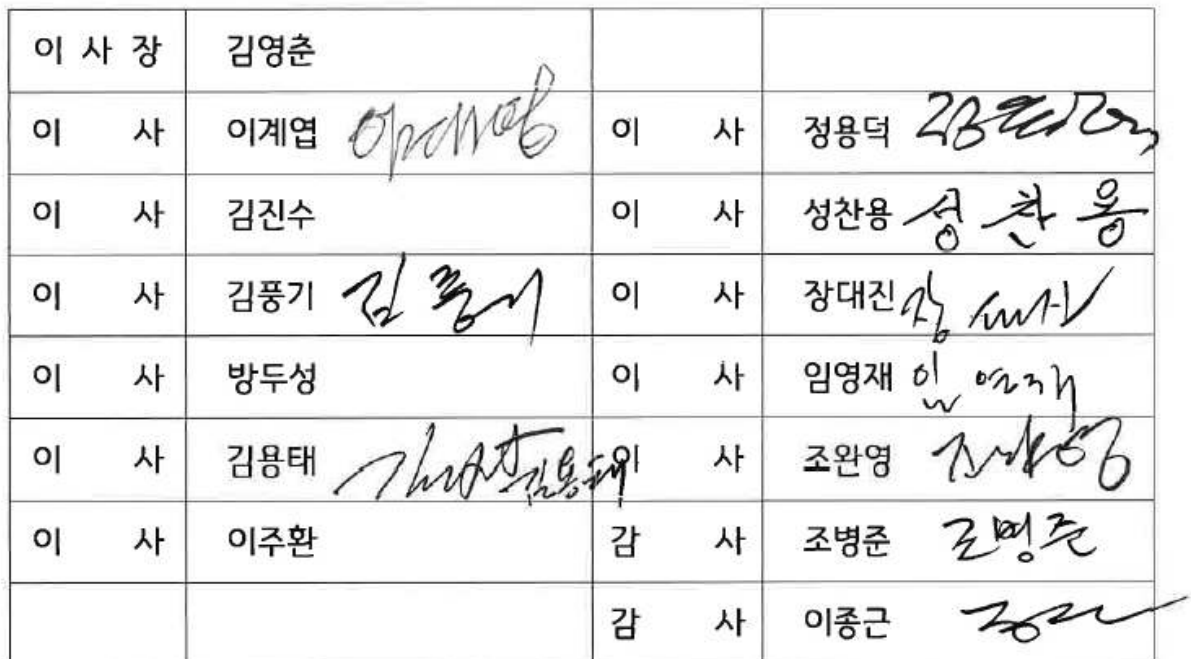 이 사 장 김영춘
이 사 이계엽 이계엽 이 사 정용덕
이 사 김진수 이 사 성찬용 성찬용
이 사 김풍기 김풍기 이 사 장대진 장대진
이 사 방두성 이 사 임영재 임영재
이 사 김용태 김용태 이 사 조완영 조완영
이 사 이주환 감 사 조병준 조병준
감 사 이종근